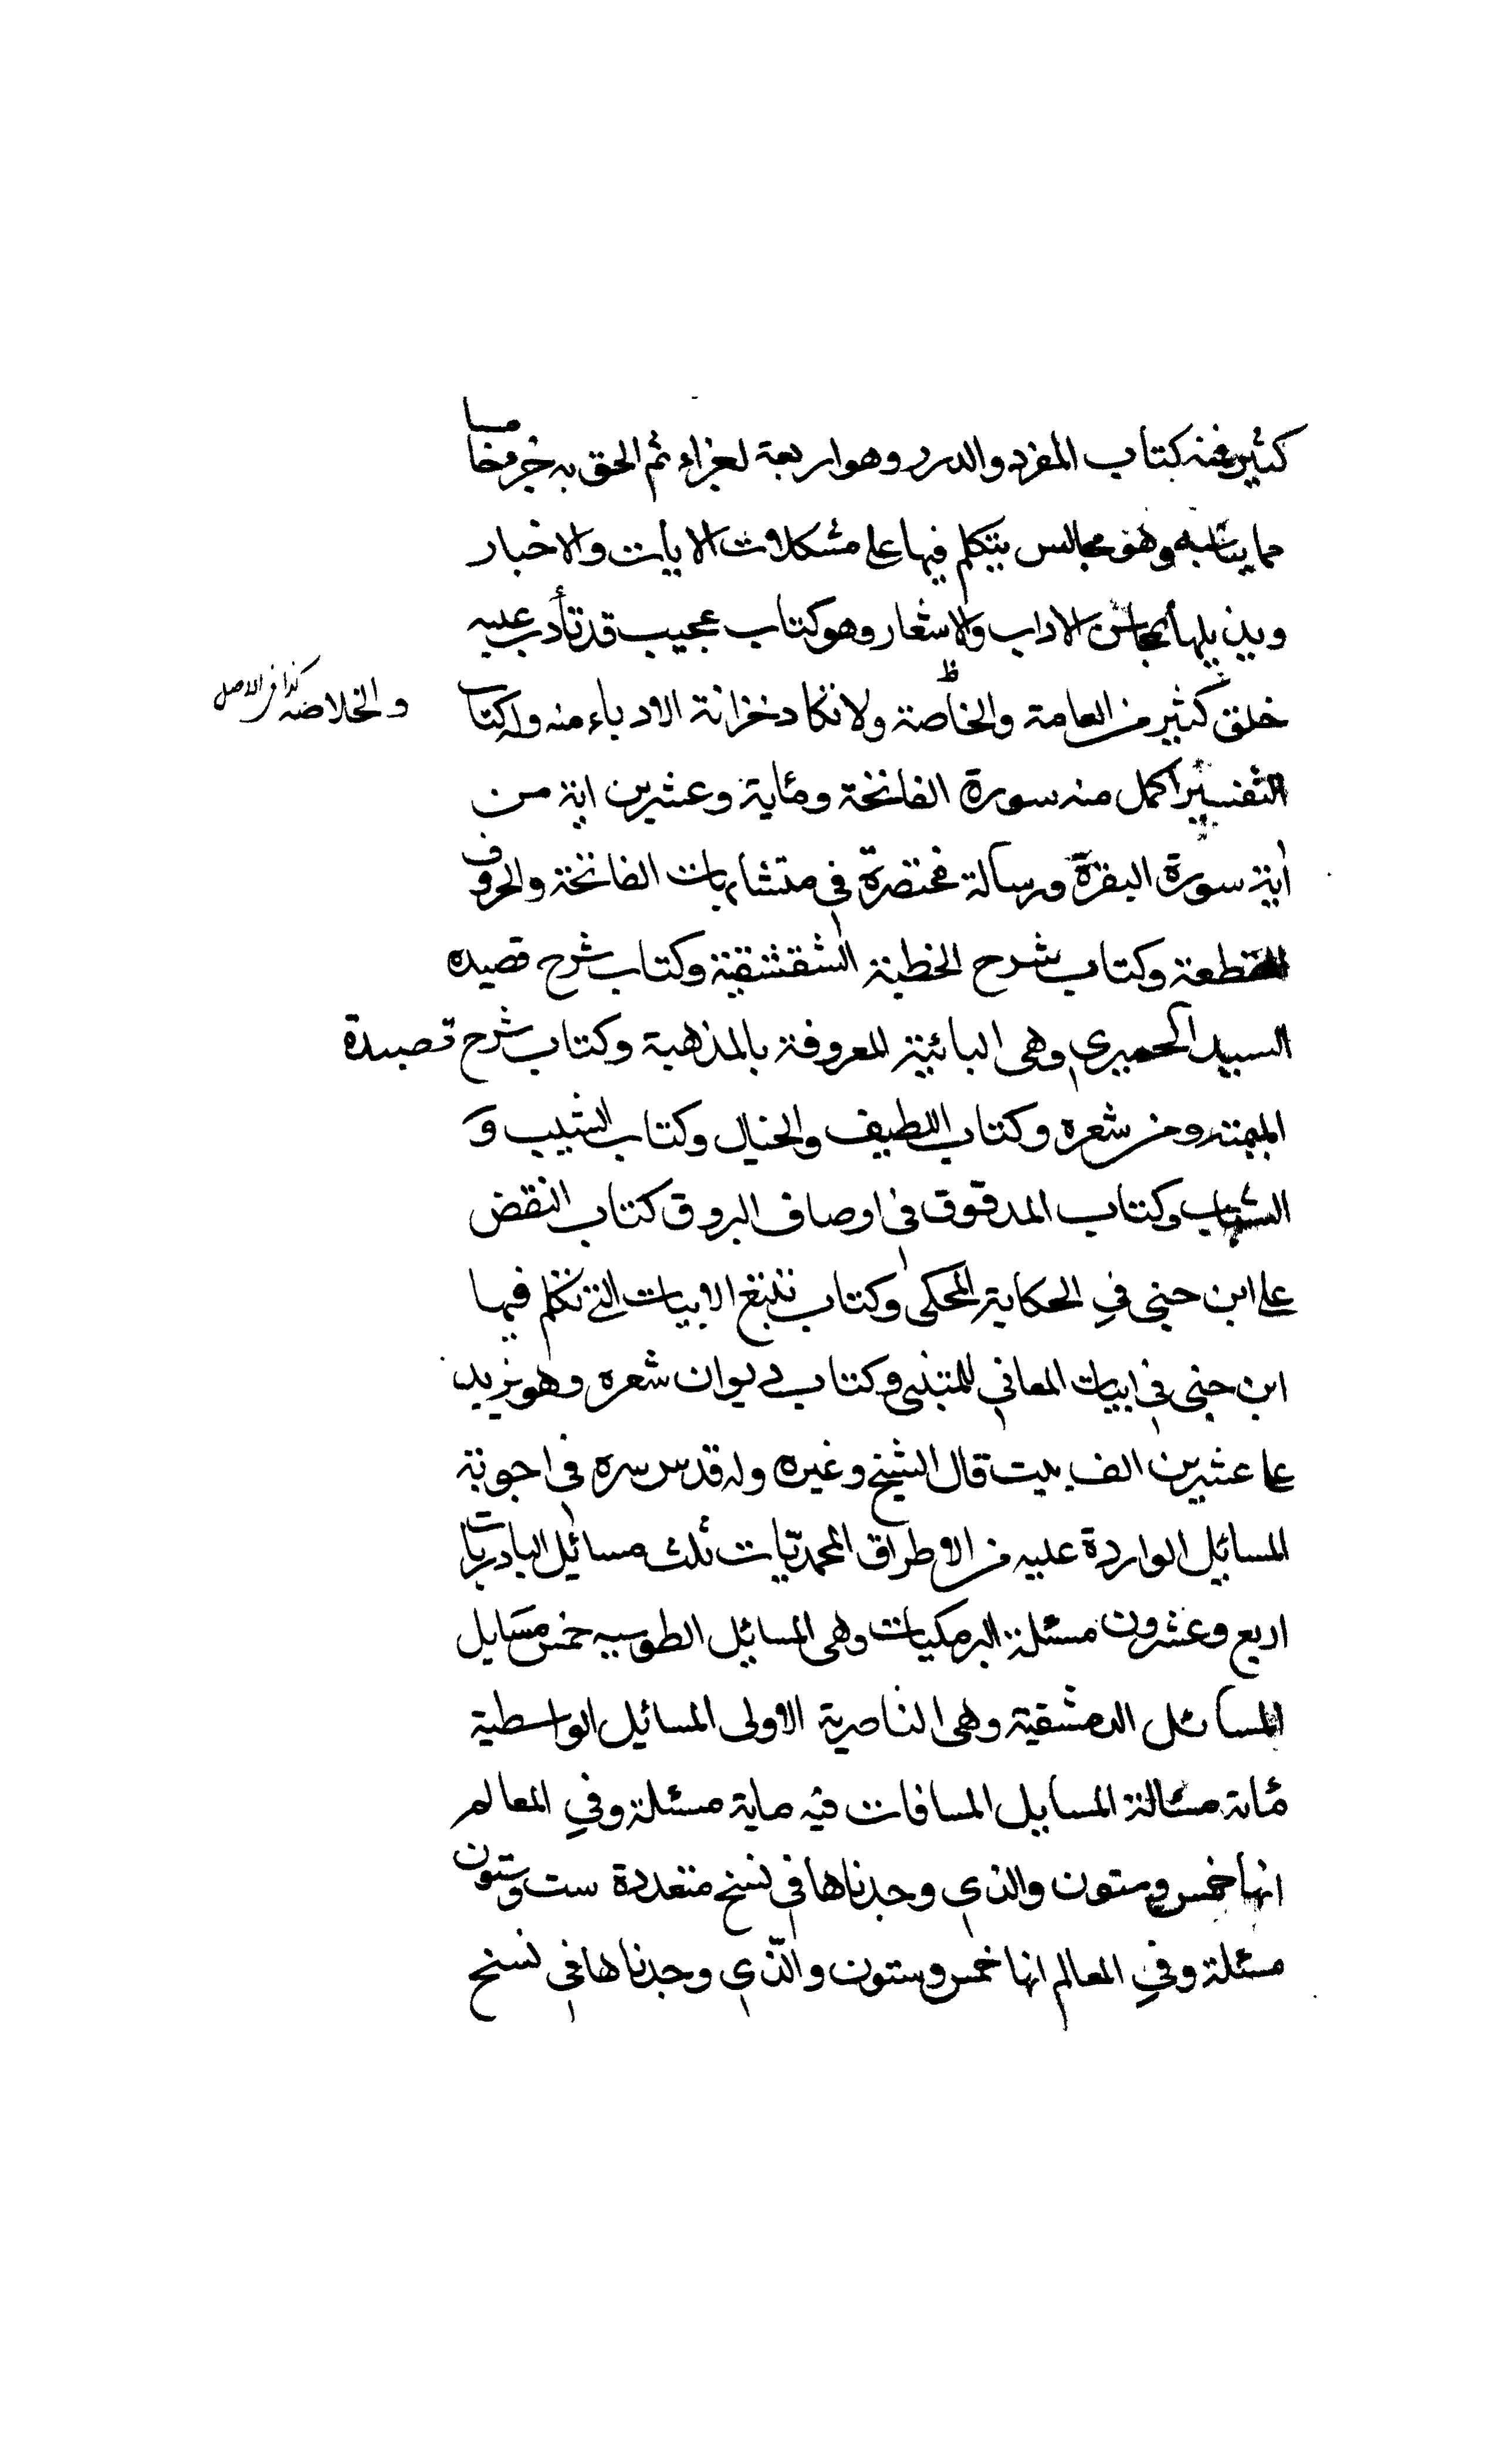 كثير فمنه كتاب المفرد والدرر وهو اربعة اجزاء ثم الحق به جزء خامسا
مما يناسبه وهو مجالس يتكلم فيها على مشكلات الايات والاخبار
ويذيلها بمحاسن الاداب والاشعار وهو كتاب عجيب قد تأدب عليه
خلق كثير من العامة والخاصة ولا تكاد خزانة الادباء منه وله كتاب
والخلاصه كذا في الاصل
التفسير اكمل منه سورة الفاتحة ومائة وعشرين اية من
أية سورة البقرة ورسالة مختصرة في متشابهات الفاتحة والحروف
المقطعة وكتاب شرح الخطبة الشقشقية وكتاب شرح قصيده
السيد الحميري وهى البائية المعروفة بالمذهبة وكتاب شرح قصيدة
من شعره وكتاب اللطيف والخيال وكتاب الشيب و
الشباب وكتاب المدقوق في اوصاف البروق كتاب النقض
على ابن جنى في الحكاية المحكى وكتاب تتبع الابيات التى تكلم فيها
ابن جنى في ابيات المعاني للمتنبى وكتاب ديوان شعره وهو يزيد
على عشرين الف بيت قال الشيخ وغيره وله قدس سره في اجوبة
المسائل الواردة عليه من الاطراق المحمديات ثلث مسائل البادريات
اربع وعشرون مسئلة البرمكيات وهى المسائل الطوسيه خمس مسايل
المسائل الدمشقية وهى الناصرية الاولى المسائل الواسطية
مائة مسئالة المسايل المسافات فيه ماية مسئلة وفي المعالم
انها خمس وستون والذي وجدناها في نسخ متعددة ست وستون
مسئلة وفي المعالم انها خمس وستون والذي وجدناها في نسخ